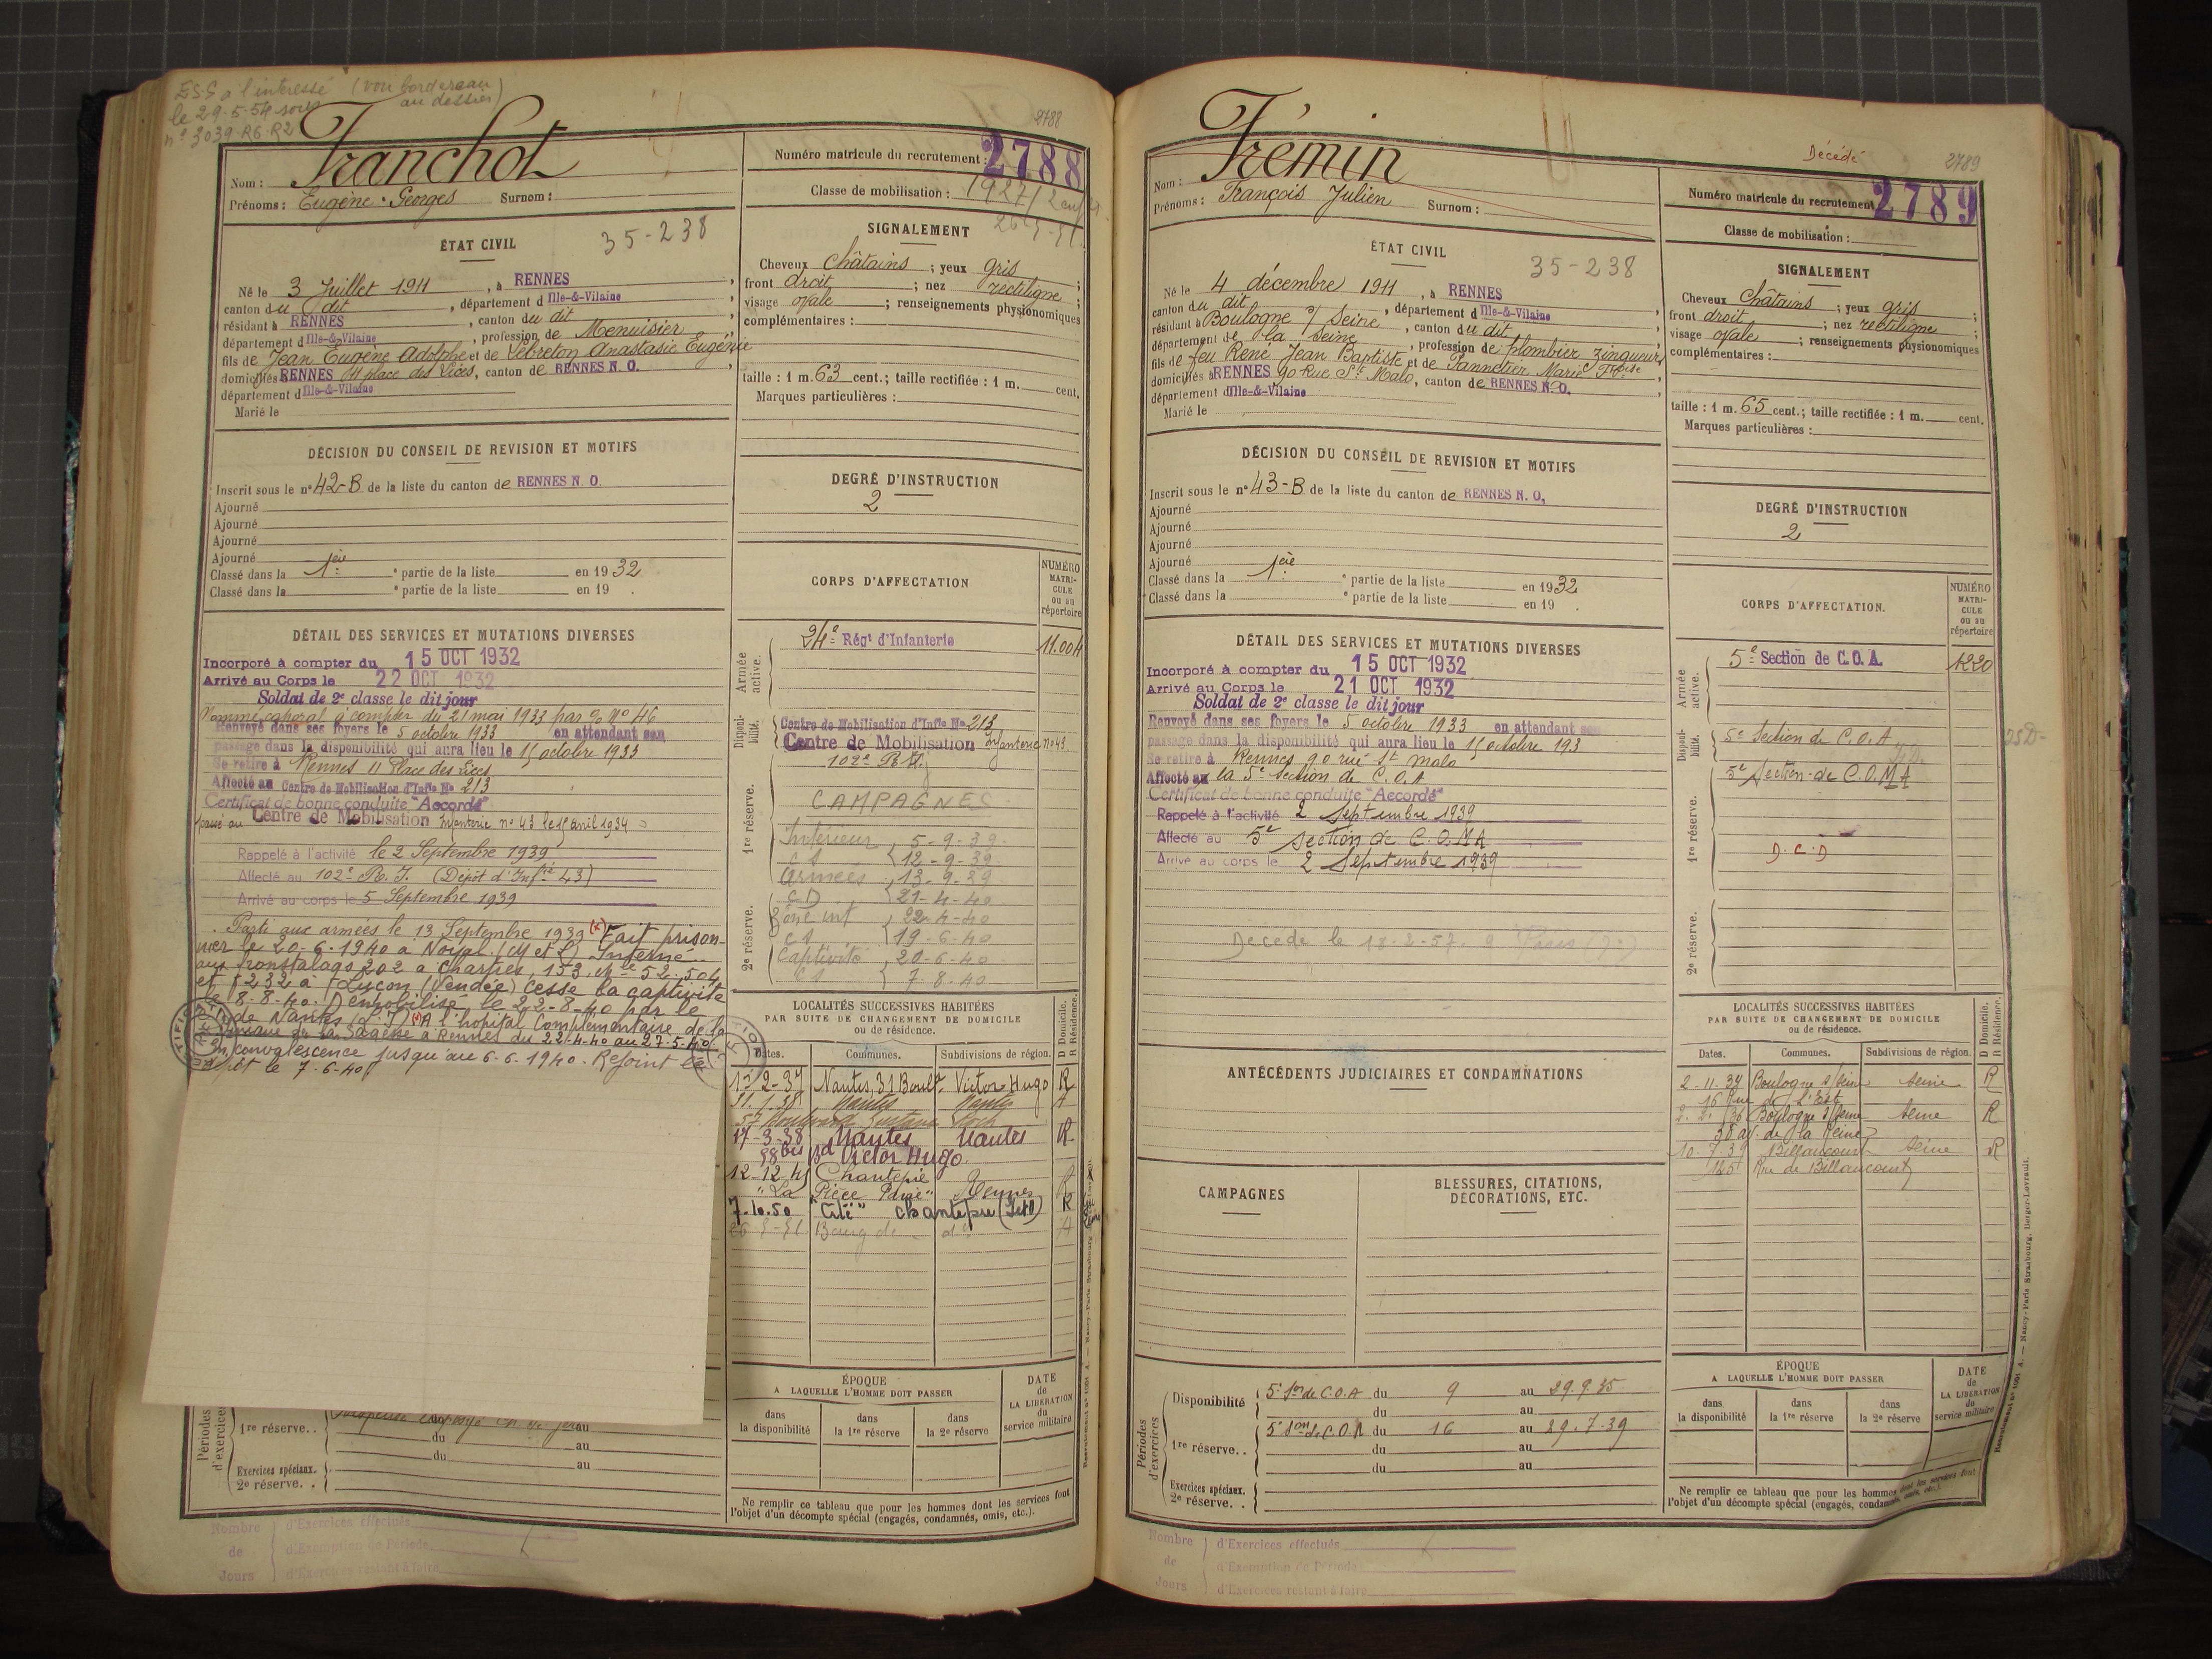 E.S.S à l'intéressé (voir bordereau
au dossier)
le 29.5.54 sous
n° 3039.R6.R2
2788
Nom : Franchot
Prénoms : Eugène Georges Surnom :
Numéro matricule du recrutement : 2788
Classe de mobilisation : 1927/2
ÉTAT CIVIL
35-238
Né le 3 Juillet 1911, à RENNES,
canton du dit, département d'Ille-&-Vilaine,
résidant à RENNES, canton du dit,
département d'Ille-&-Vilaine, profession de Menuisier,
fils de Jean Eugène Adolphe et de Lebreton Anastasie Eugénie
domiciliés à RENNES 11 place des Lices, canton de RENNES N. O.,
département d'Ille-&-Vilaine
Marié le
SIGNALEMENT
Cheveux Châtains ; yeux gris ;
front droit ; nez rectiligne ;
visage ovale ; renseignements physionomiques
complémentaires :
taille : 1 m. 63 cent. ; taille rectifiée : 1 m. cent.
Marques particulières :
DÉCISION DU CONSEIL DE REVISION ET MOTIFS
Inscrit sous le n° 42-B de la liste du canton de RENNES N. O.
Ajourné
Ajourné
Ajourné
Ajourné
Classé dans la 1ère partie de la liste en 1932
Classé dans la e partie de la liste en 19 .
DEGRÉ D'INSTRUCTION
2
DÉTAIL DES SERVICES ET MUTATIONS DIVERSES
Incorporé à compter du 15 OCT 1932
Arrivé au Corps le 22 OCT 1932
Soldat de 2e classe le dit jour
Nommé caporal à compter du 21 mai 1933 par O. N° 46
Renvoyé dans ses foyers le 5 octobre 1933 en attendant son
passage dans la disponibilité qui aura lieu le 15 octobre 1933
Se retire à Rennes 11 Place des Lices
Affecté au Centre de Mobilisation d'Infie No 213
Certificat de bonne conduite "Accordé"
passé au Centre de Mobilisation Infanterie n° 43 le 15 Avril 1934
Rappelé à l'activité le 2 Septembre 1939
Affecté au 102e R.I. (Dépôt d'Infie 43)
Arrivé au corps le 5 Septembre 1939
Parti aux armées le 13 Septembre 1939 (x) Fait prison-
nier le 20-6-1940 à Noyal (M et L) Interné
aux fronstalags 202 à Chartres, 153, Mle 52.504
et 232 à Luçon (Vendée) Cesse la captivité
le 8-8-40. Démobilisé le 22-8-40 par le
de Nantes (L.I.) (x) A l'hopital Complémentaire de la
de la Sagesse à Rennes du 22-4-40 au 27-5-40
En convalescence jusqu'au 6-6-1940. Rejoint le
dépôt le 7-6-40
CORPS D'AFFECTATION
NUMÉRO MATRICULE ou au répertoire
Armée active.
24e Régt d'Infanterie 11.004
Disponibilité.
Centre de Mobilisation d'Infie No 213
Centre de Mobilisation Infanterie n° 43
1re réserve.
102e R.I.
CAMPAGNES
Intérieur 5-9-39
CS 12-9-39
Armées 13-9-39
CD 21-4-40
Zone int 22-4-40
CS 19-6-40
2e réserve.
Captivité 20-6-40
CS 7.8.40
LOCALITÉS SUCCESSIVES HABITÉES
PAR SUITE DE CHANGEMENT DE DOMICILE
ou de résidence.
D Domicile. R Résidence.
Dates. Communes. Subdivisions de région.
Nantes, 31 Boult Victor Hugo R
31.1.38 Nantes Nantes
17-3-38 Nantes Nantes R
98 bis Bd Victor Hugo
12-12-41 Chantepie
"La Pièce Pavée" Rennes
7.10.50 "Cité" Chantepie (I et V) R
Bourg de do
Périodes d'exercices
1re réserve. . du au
du au
du au
Exercices spéciaux.
2e réserve. .
ÉPOQUE
A LAQUELLE L'HOMME DOIT PASSER
dans la disponibilité
dans la 1re réserve
dans la 2e réserve
DATE de LA LIBÉRATION du service militaire
Ne remplir ce tableau que pour les hommes dont les services font
l'objet d'un décompte spécial (engagés, condamnés, omis, etc.).
Nombre de Jours
d'Exercices effectués
d'Exemption de Période
d'Exercices restant à faire
Décédé
2789
Nom : Frémin
Prénoms : François Julien Surnom :
Numéro matricule du recrutement 2789
Classe de mobilisation :
ÉTAT CIVIL
35-238
Né le 4 décembre 1911, à RENNES
canton du dit, département d'Ille-&-Vilaine
résidant à Boulogne s/ Seine, canton du dit,
département de la Seine, profession de plombier zingueur,
fils de feu René Jean Baptiste et de Pannetier Marie Thse
domiciliés à RENNES 90 Rue St Malo, canton de RENNES N. O.
département d'Ille-&-Vilaine
Marié le
SIGNALEMENT
Cheveux Châtains ; yeux gris ;
front droit ; nez rectiligne ;
visage ovale ; renseignements physionomiques
complémentaires :
taille : 1 m. 65 cent. ; taille rectifiée : 1 m. cent.
Marques particulières :
DÉCISION DU CONSEIL DE REVISION ET MOTIFS
Inscrit sous le n° 43-B de la liste du canton de RENNES N. O.
Ajourné
Ajourné
Ajourné
Ajourné
Classé dans la 1ère partie de la liste en 1932
Classé dans la e partie de la liste en 19 .
DEGRÉ D'INSTRUCTION
2
DÉTAIL DES SERVICES ET MUTATIONS DIVERSES
Incorporé à compter du 15 OCT 1932
Arrivé au Corps le 21 OCT 1932
Soldat de 2e classe le dit jour
Renvoyé dans ses foyers le 5 octobre 1933 en attendant son
passage dans la disponibilité qui aura lieu le 15 octobre 193
Se retire à Rennes 90 rue St Malo
Affecté au la 5e Section de C.O.A
Certificat de bonne conduite "Accordé"
Rappelé à l'activité 2 Septembre 1939
Affecté au 5e Section de C.O.M.A
Arrivé au corps le 2 Septembre 1939
Décédé le 18-2-57 à Paris
CORPS D'AFFECTATION.
NUMÉRO MATRICULE ou au répertoire
Armée active.
5e Section de C.O.A. 1220
Disponibilité.
5e Section de C.O.A
1re réserve.
5e Section de C.O.M.A
D.C.D
2e réserve.
ANTÉCÉDENTS JUDICIAIRES ET CONDAMNATIONS
LOCALITÉS SUCCESSIVES HABITÉES
PAR SUITE DE CHANGEMENT DE DOMICILE
ou de résidence.
D Domicile. R Résidence.
Dates. Communes. Subdivisions de région.
2-11.34 Boulogne s/Seine Seine R
16 Rue de l'Est
2. 2. 36 Boulogne s/Seine Seine R
38 av. de la Reine
10.7.39 Billancourt Seine R
165 Rue de Billancourt
CAMPAGNES
BLESSURES, CITATIONS, DÉCORATIONS, ETC.
Périodes d'exercices
Disponibilité 5e Son de C.O.A du 9 au 29.9.35
du au
1re réserve. . 5e Son de C.O.A du 16 au 29.7.39
du au
du au
Exercices spéciaux.
2e réserve. .
ÉPOQUE
A LAQUELLE L'HOMME DOIT PASSER
dans la disponibilité
dans la 1re réserve
dans la 2e réserve
DATE de LA LIBÉRATION du service militaire
Ne remplir ce tableau que pour les hommes dont les services font
l'objet d'un décompte spécial (engagés, condamnés, omis, etc.).
Nombre de Jours
d'Exercices effectués
d'Exemption de Périodes
d'Exercices restant à faire
Nancy-Paris-Strasbourg, Berger-Levrault.